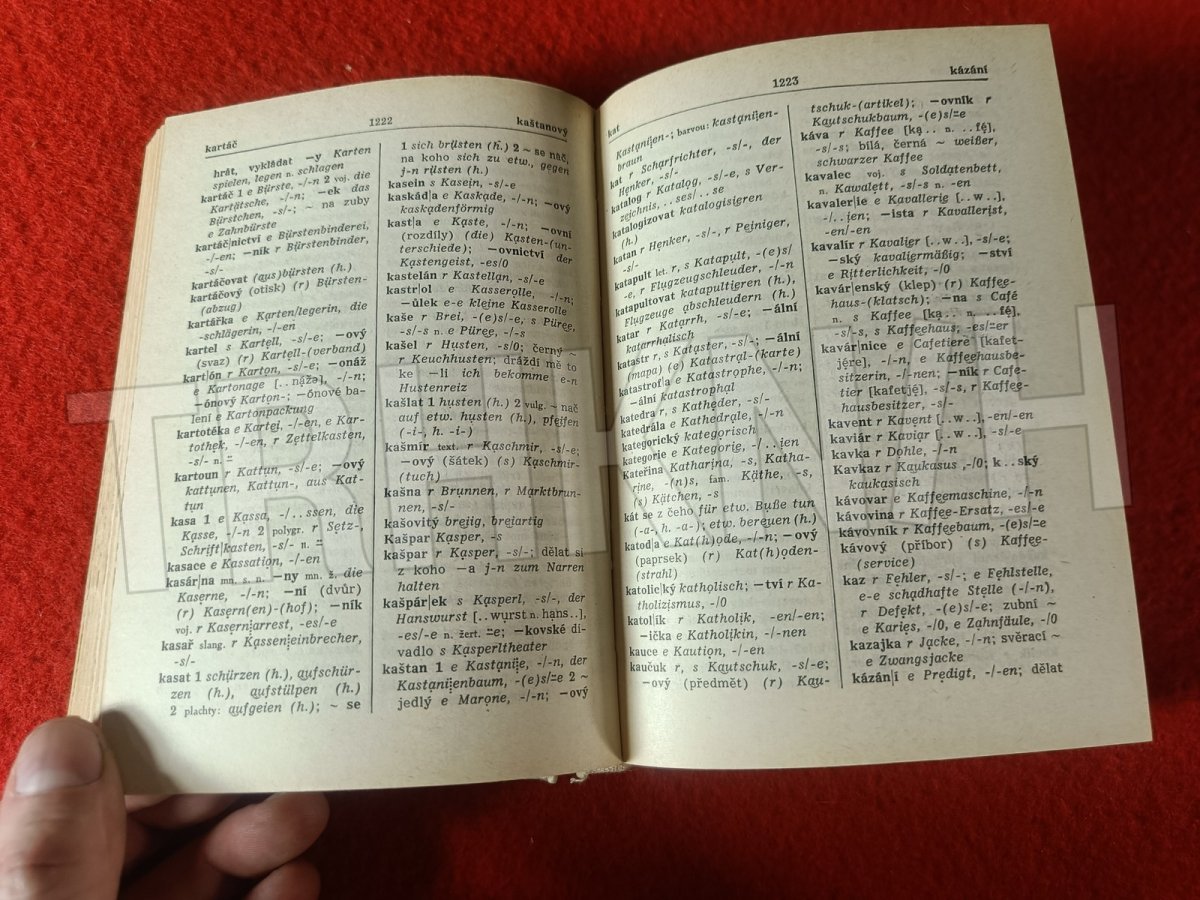 kartáč 1222 kaštanový
hrát, vykládat —y Karten
spielen, legen n. schlagen
kartáč 1 e Bürste, -/-n 2 voj. die
Kartätsche, -/-n; —ek das
Bürstchen, -s/-; ~ na zuby
e Zahnbürste
kartáč|nictví e Bürstenbinderei,
-/-en; —ník r Bürstenbinder,
-s/-
kartáčovat (aus)bürsten (h.)
kartáčový (otisk) (r) Bürsten-
(abzug)
kartářka e Karten/legerin, die
-schlägerin, -/-en
kartel s Kartell, -s/-e; —ový
(svaz) (r) Kartell-(verband)
kart|ón r Karton, -s/-e; —onáž
e Kartonage [..nāžə], -/-n;
—ónový Karton-; —ónové ba-
lení e Kartonpackung
kartotéka e Kartei, -/-en, e Kar-
tothek, -/-en, r Zettelkasten,
-s/- n. =̈
kartoun r Kattun, -s/-e; —ový
kattunen, Kattun-, aus Kat-
tun
kasa 1 e Kassa, -/..ssen, die
Kasse, -/-n 2 polygr. r Setz-,
Schrift|kasten, -s/- n. =̈
kasace e Kassation, -/-en
kasár|na mn. s. n. —ny mn. ž. die
Kaserne, -/-n; —ní (dvůr)
(r) Kasern(en)-(hof); —ník
voj. r Kasernjarrest, -es/-e
kasař slang. r Kassenjeinbrecher,
-s/-
kasat 1 schürzen (h.), aufschür-
zen (h.), aufstülpen (h.)
2 plachty: aufgeien (h.); ~ se
1 sich brüsten (h.) 2 ~ se nač,
na koho sich zu etw., gegen
j-n rüsten (h.)
kasein s Kasein, -s/-e
kaskád|a e Kaskade, -/-n; —ový
kaskadenförmig
kast|a e Kaste, -/-n; —ovní
(rozdíly) (die) Kasten-(un-
terschiede); —ovnictví der
Kastengeist, -es/0
kastelán r Kastellan, -s/-e
kastr|ol e Kasserolle, -/-n;
—ůlek e-e kleine Kasserolle
kaše r Brei, -(e)s/-e, s Püree,
-s/-s n. e Püree, -/-s
kašel r Husten, -s/0; černý ~
r Keuchhusten; dráždí mě to
ke —li ich bekomme e-n
Hustenreiz
kašlat 1 husten (h.) 2 vulg. ~ nač
auf etw. husten (h.), pfeifen
(-i-, h. -i-)
kašmír text. r Kaschmir, -s/-e;
—ový (šátek) (s) Kaschmir-
(tuch)
kašna r Brunnen, r Marktbrun-
nen, -s/-
kašovitý breiig, breiartig
Kašpar Kasper, -s
kašpar r Kasper, -s/-; dělat si
z koho —a j-n zum Narren
halten
kašpár|ek s Kasperl, -s/-, der
Hanswurst [..wurst n. hans..],
-es/-e n. žert. =̈e; —kovské di-
vadlo s Kasperltheater
kaštan 1 e Kastanije, -/-n, der
Kastanijenbaum, -(e)s/=̈e 2 ~
jedlý e Marone, -/-n; —ový
kat 1223 kázání
Kastanijen-; barvou: kastanijen-
braun
kat r Scharfrichter, -s/-, der
Henker, -s/-
katalog r Katalog, -s/-e, s Ver-
zeichnis, ..ses/..se
katalogizovat katalogisieren
(h.)
katan r Henker, -s/-, r Peiniger,
-s/-
katapult let. r, s Katapult, -(e)s/
-e, r Flugzeugschleuder, -/-n
katapultovat katapultieren (h.),
Flugzeuge abschleudern (h.)
katar r Katarrh, -s/-e; —ální
katarrhalisch
katastr r, s Kataster, -s/-; —ální
(mapa) (e) Katastral-(karte)
katastrof|a e Katastrophe, -/-n;
—ální katastrophal
katedra r, s Katheder, -s/-
katedrála e Kathedrale, -/-n
kategorický kategorisch
kategorie e Kategorie, -/..ien
Kateřina Katharina, -s, Katha-
rine, -(n)s, fam. Käthe, -s,
(s) Kätchen, -s
kát se z čeho für etw. Buße tun
(-a-, h. -a-); etw. bereuen (h.)
katod|a e Kat(h)ode, -/-n; —ový
(paprsek) (r) Kat(h)oden-
(strahl)
katolic|ký katholisch; —tví r Ka-
tholizismus, -/0
katol|ík r Katholik, -en/-en;
—ička e Katholikin, -/-nen
kauce e Kaution, -/-en
kaučuk r, s Kautschuk, -s/-e;
—ový (předmět) (r) Kau-
tschuk-(artikel); —ovník r
Kautschukbaum, -(e)s/=̈e
káva r Kaffee [ka.. n. ..fé],
-s/-s; bílá, černá ~ weißer,
schwarzer Kaffee
kavalec voj. s Soldatenbett,
n. Kawalett, -s/-s n. -en
kavaler|ie e Kavallerie [..w..],
-/..ien; —ista r Kavallerist,
-en/-en
kavalír r Kavalier [..w..], -s/-e;
—ský kavaliermäßig; —ství
e Ritterlichkeit, -/0
kavár|enský (klep) (r) Kaffee-
haus-(klatsch); —na s Café
n. s Kaffee [ka.. n. ..fé],
-s/-s, s Kaffeehaus, -es/=̈er
kavár|nice e Cafetiere [kafet-
jére], -/-n, e Kaffeehausbe-
sitzerin, -/-nen; —ník r Cafe-
tier [kafetjé], -s/-s, r Kaffee-
hausbesitzer, -s/-
kavent r Kavent [..w..], -en/-en
kaviár r Kaviar [..w..], -s/-e
kavka r Dohle, -/-n
Kavkaz r Kaukasus ,-/0; k..ský
kaukasisch
kávovar e Kaffeemaschine, -/-n
kávovina r Kaffee-Ersatz, -es/-e
kávovník r Kaffeebaum, -(e)s/=̈e
kávový (příbor) (s) Kaffee-
(service)
kaz r Fehler, -s/-; e Fehlstelle,
e-e schadhafte Stelle (-/-n),
r Defekt, -(e)s/-e; zubní ~
e Karies, -/0, e Zahnfäule, -/0
kazajka r Jacke, -/-n; svěrací ~
e Zwangsjacke
kázán|í e Predigt, -/-en; dělat
TRHKNIH